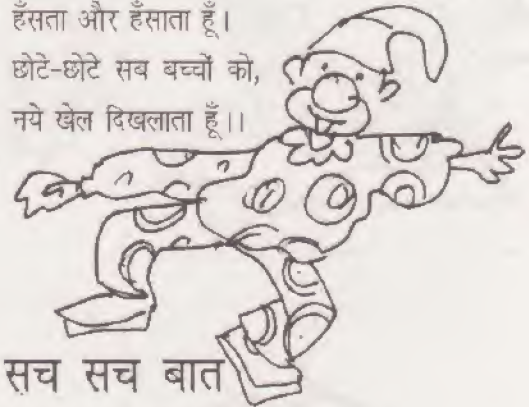 हँसता और हँसाता हूँ।
छोटे-छोटे सब बच्चों को,
नये खेल दिखलाता हूँ।।
सच सच बात